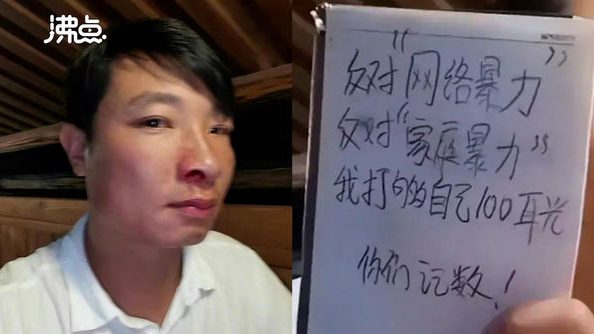 沸点
反对“网络暴力”
反对“家庭暴力”
我打的自己100耳光
你们记数!